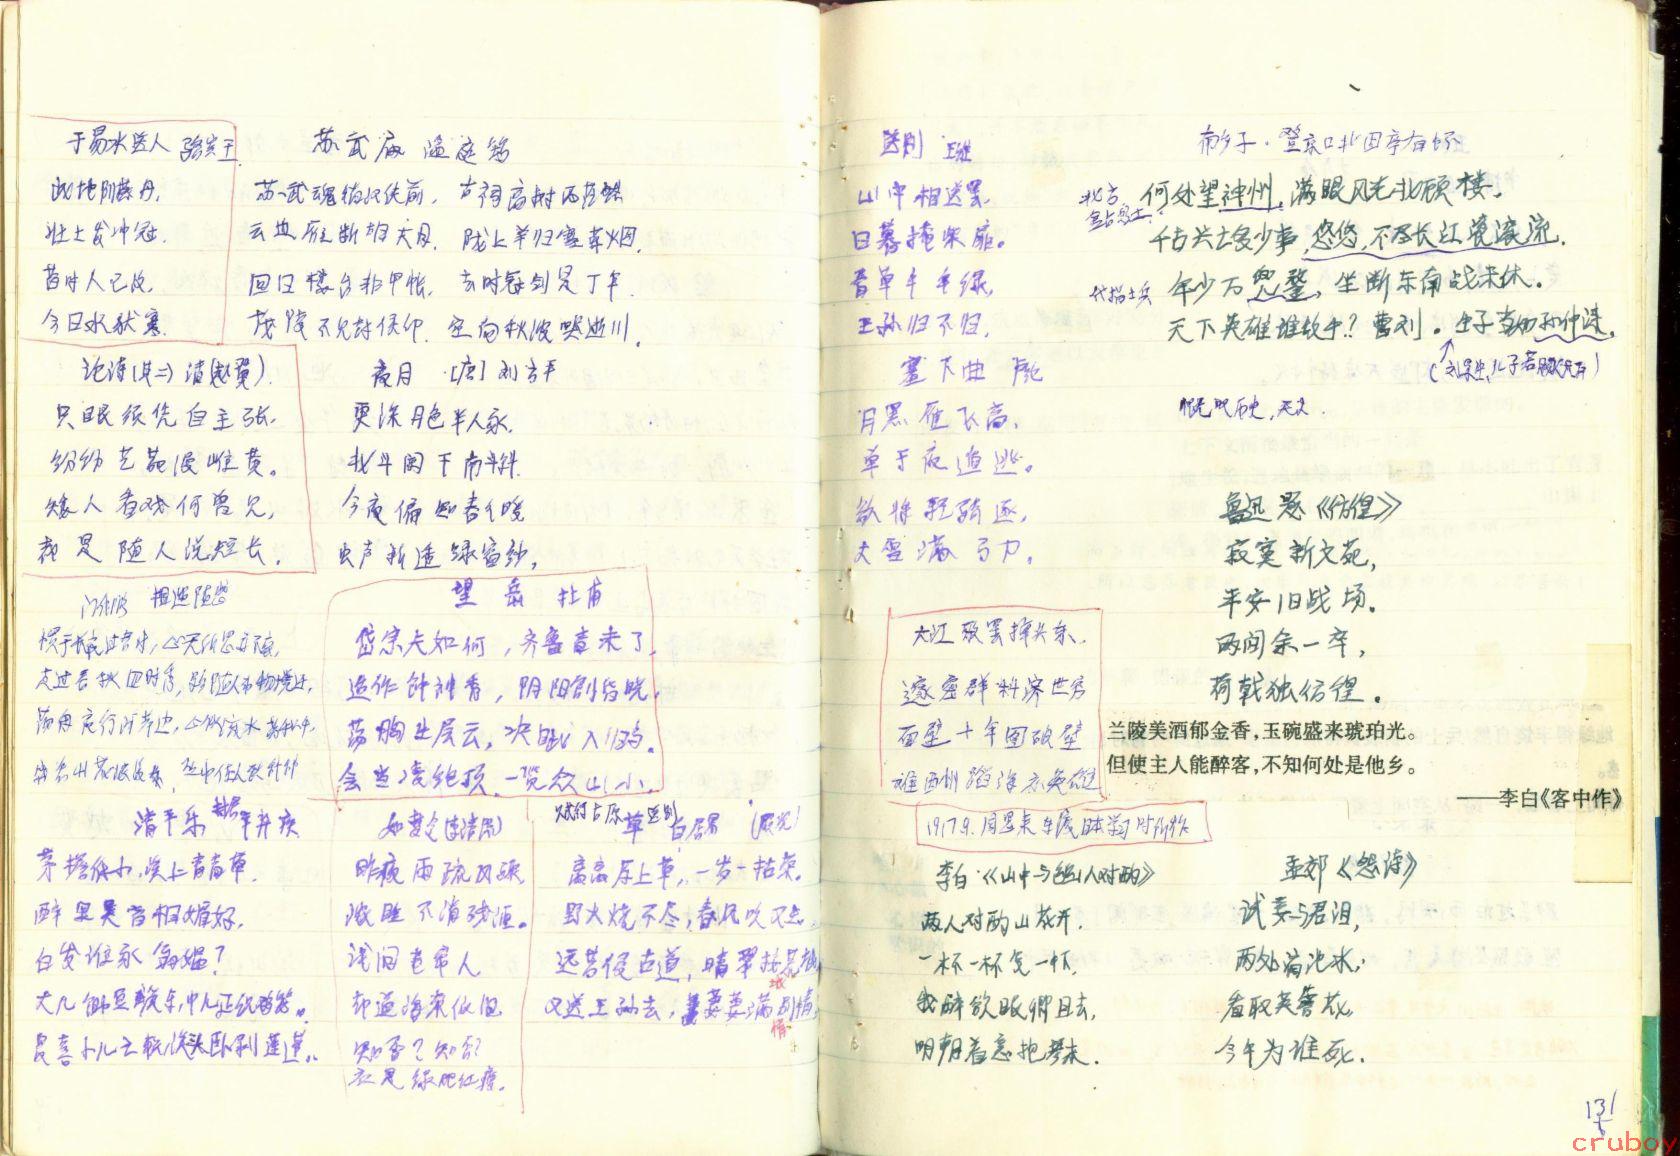 于易水送人 骆宾王
此地别燕丹,
壮士发冲冠.
昔时人已没,
今日水犹寒.
苏武庙 温庭筠
苏武魂销汉使前, 古祠高树两茫然
云边雁断胡天月, 陇上羊归塞草烟.
回日楼台非甲帐, 去时冠剑是丁年.
茂陵不见封侯印. 空向秋波哭逝川.
论诗(其二) 清(赵翼).
只眼须凭自主张.
纷纷艺苑漫雌黄。
矮人看戏何曾见,
都是随人说短长.
夜月 ·[唐] 刘方平
更深月色半人家,
北斗阑干南斗斜.
今夜偏知春气暖
虫声新透绿窗纱,
望岳 杜甫
岱宗夫如何,齐鲁青未了.
造作钟神秀, 阴阳割昏晓.
荡胸生层云,决眦入归鸟.
会当凌绝顶.一览众山小.
清平乐 村居 辛弃疾
茅檐低小,溪上青青草.
醉里吴音相媚好,
白发谁家翁媪?
大儿锄豆溪东,中儿正织鸡笼.
最喜小儿亡赖,溪头卧剥莲蓬.
如梦令(李清照)
昨夜雨疏风骤
浓睡不消残酒。
试问卷帘人
却道海棠依旧
知否?知否?
应是绿肥红瘦.
赋得古原 送别
草 白居易
离离原上草,一岁一枯荣.
野火烧不尽,春风吹又生
远芳侵古道,晴翠接荒城
又送王孙去,萋萋满别情
城
情
送别 王维
山中相送罢,
日暮掩柴扉。
春草年年绿,
王孙归不归,
塞下曲 卢纶
月黑雁飞高,
单于夜遁逃。
欲将轻骑逐,
大雪满弓刀,
大江歌罢掉头东.
邃密群科济世穷
面壁十年图破壁
难酬蹈海亦英雄
1917.9.周恩来东渡日本学习时所作
李白·《山中与幽人对酌》
两人对酌山花开.
一杯一杯复一杯.
我醉欲眠卿且去,
明朝有意抱琴来.
南乡子·登京口北固亭有怀
何处望神州,满眼风光北顾楼,
千古兴亡多少事,悠悠,不尽长江滚滚流.
年少万兜鍪,坐断东南战未休。
天下英雄谁敌手?曹刘。生子当如孙仲谋,
北方
代指士兵
鲁迅 题《彷徨》
寂寞新文苑,
平安旧战场。
两间余一卒,
荷戟独彷徨。
兰陵美酒郁金香,玉碗盛来琥珀光。
但使主人能醉客,不知何处是他乡。
——李白《客中作》
孟郊《怨诗》
试妾与君泪,
两处滴池水;
看取芙蓉花,
今年为谁死.
131
cruboy